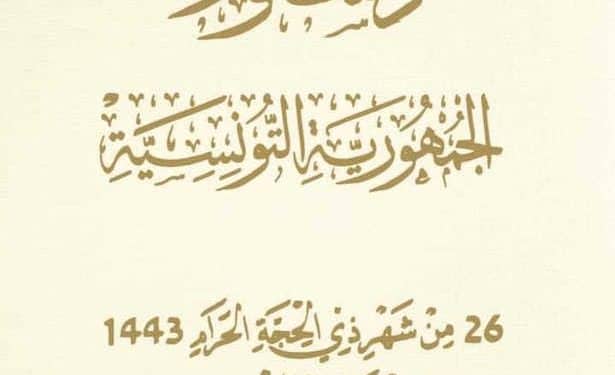 الجُمْهُورِيَّةِ التُّونِسِيَّةِ
26 مِنْ شَهْرِ ذِي الحِجَّةِ الحَرَامِ 1443